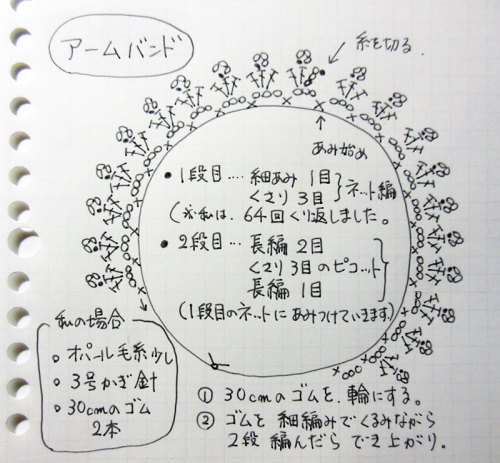 アームバンド
糸を切る.
あみ始め
• 1段目 … 細あみ 1目
くさり 3目 } ネット編
(※私は、64回くり返しました。
• 2段目 … 長編 2目
くさり 3目のピコット
長編 1目
(1段目のネットにあみつけていきます)
私の場合
○ オパール毛糸少し
○ 3号かぎ針
○ 30cmのゴム
2本
① 30cmのゴムを、輪にする。
② ゴムを 細編みでくるみながら
2段 編んだら でき上がり。